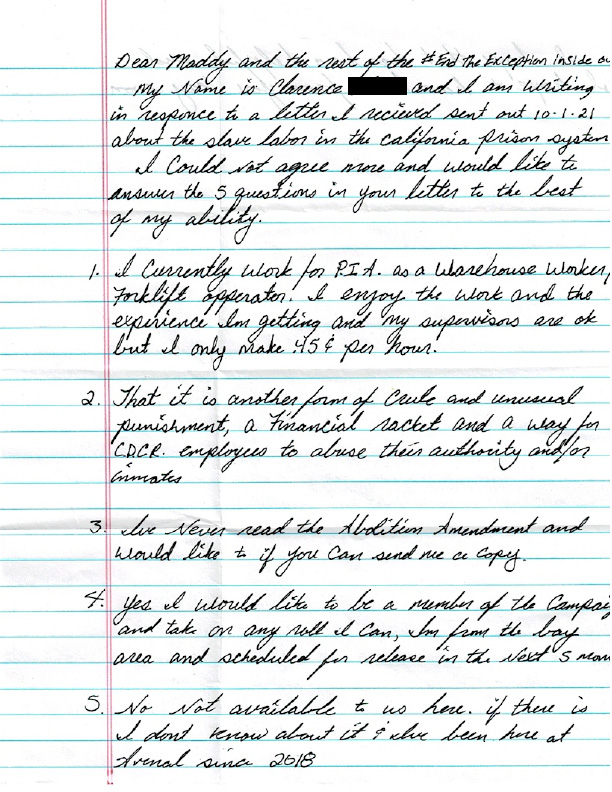 Dear Maddy and the rest of the #End The Exception inside ou
My Name is Clarence and I am writing
in responce to a letter I recieved sent out 10-1-21
about the slave labor in the california prison system
I Could Not agree more and would like to
answer the 5 questions in your letter to the best
of my ability.
1. I Currently work for P.I.A. as a Warehouse Worker,
Forklift opperator. I enjoy the work and the
experience Im getting and my supervisors are ok
but I only make .45¢ per hour.
2. That it is another form of Crule and unusual
punishment, a Financial racket and a way for
C.D.C.R. employees to abuse their authority and/or
inmates
3. Ive Never read the Abolition Amendment and
would like to if you Can send me a Copy.
4. Yes I would like to be a member of the Campaig
and take on any roll I Can, Im from the bay
area and scheduled for release in the Next 5 mon
5. No Not available to us here. if there is
I dont know about it & Ive been here at
Avenal since 2018